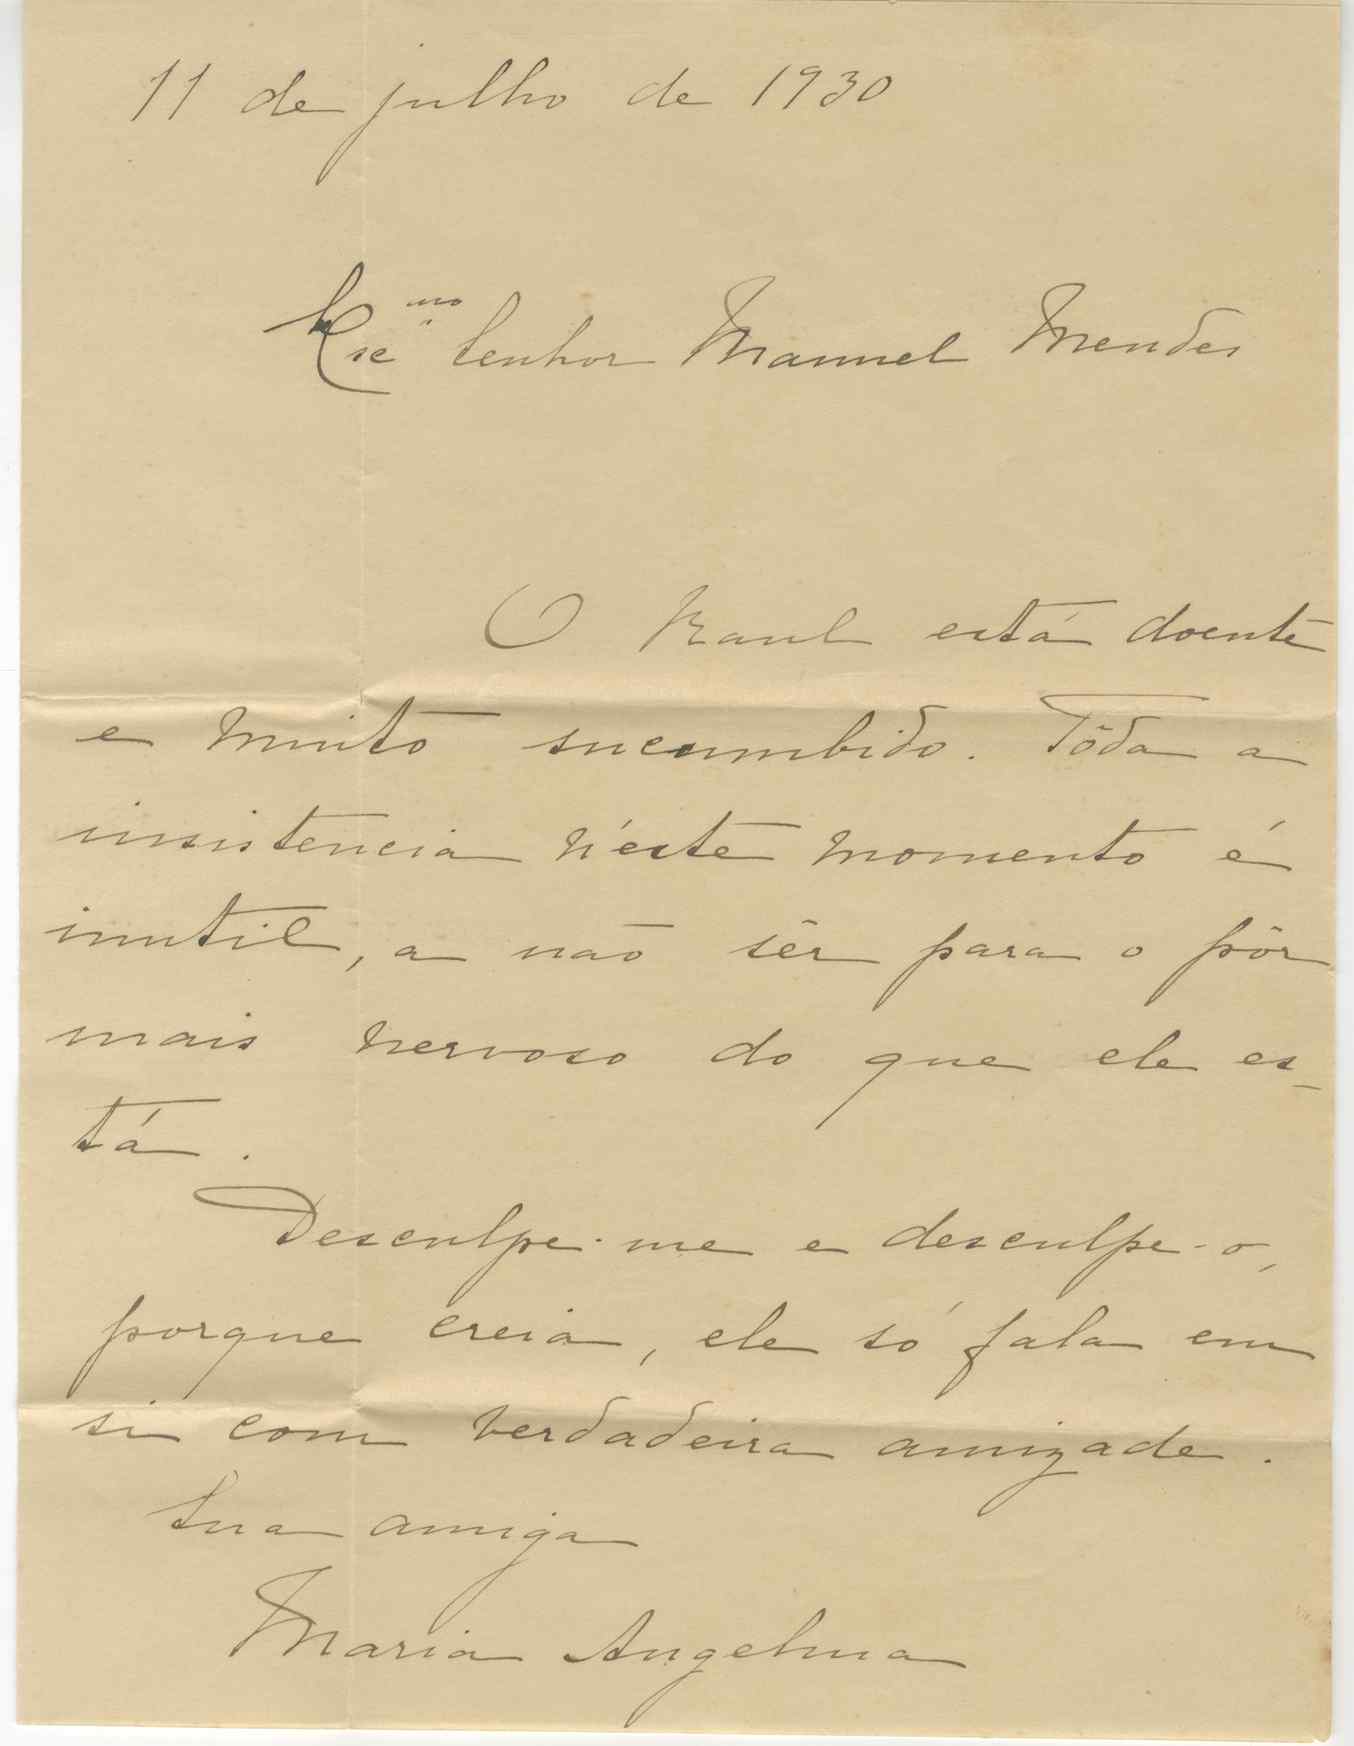 11 de julho de 1930
Exc.mo Senhor Manuel Mendes
O Raul está doente
e muito sucumbido. Tôda a
insistencia n'éste momento é
inutil, a não sêr para o pôr
mais nervoso do que ele es-
tá.
Desculpe-me e desculpe-o,
porque creia, ele só fala em
si com verdadeira amizade.
Sua amiga
Maria Angelina